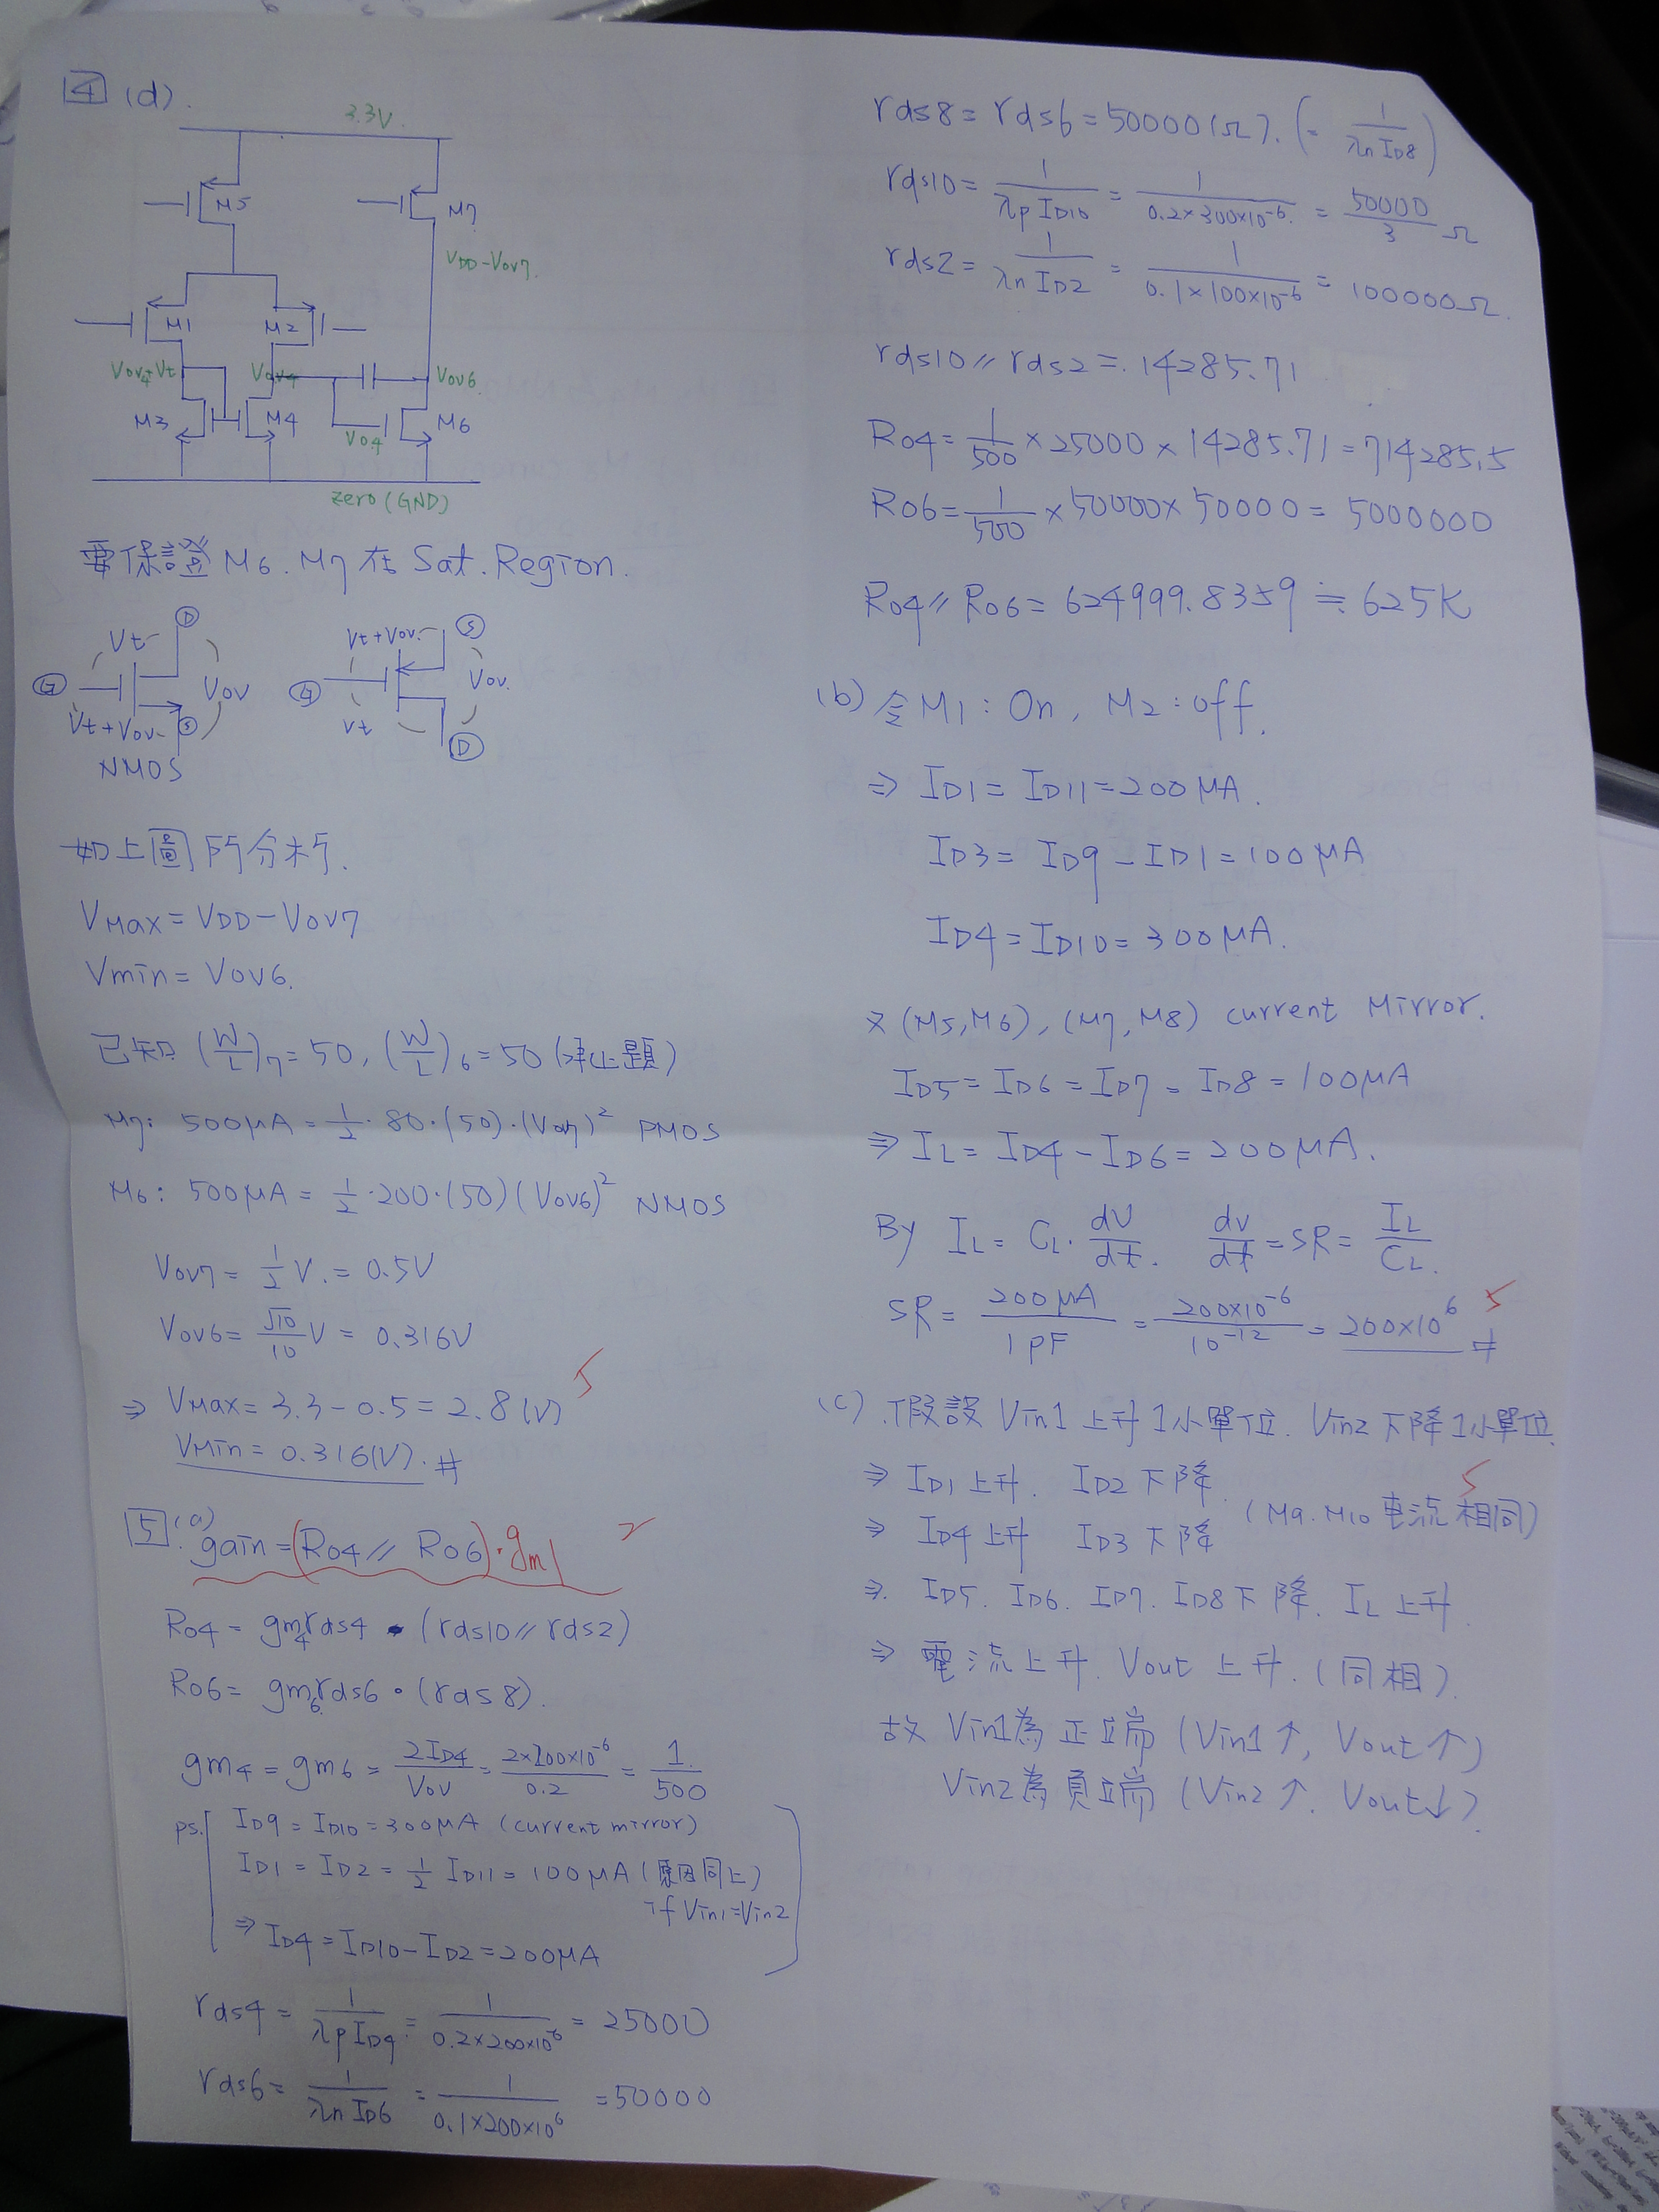 4 (d).
3.3V
M5
M7
VDD-Vov7
M1
M2
Vov4+Vt
Vov4
Vov6
M3
M4
Vo4
M6
zero (GND)
要保證 M6. M7 在 Sat. Region.
Vt
D
G
Vov
Vt+Vov
S
NMOS
Vt+Vov
S
G
Vov.
Vt
D
如上圖所分析.
VMax = VDD - Vov7
Vmin = Vov6.
已知 (W/L)7 = 50, (W/L)6 = 50 (承上題)
M7: 500μA = 1/2 · 80 · (50) · (Vov7)² PMOS
M6: 500μA = 1/2 · 200 · (50) (Vov6)² NMOS
Vov7 = 1/2 V. = 0.5V
Vov6 = √10/10 V = 0.316V
⇒ VMax = 3.3 - 0.5 = 2.8 (V)
5
VMin = 0.316(V). #
5 (a)
gain = (Ro4 // Ro6) · gm1
2
Ro4 = gm4 rds4 · (rds10 // rds2)
Ro6 = gm6 rds6 · (rds8).
gm4 = gm6 = 2ID4/Vov = 2×200×10⁻⁶/0.2 = 1/500
ps. ID9 = ID10 = 300μA (current mirror)
ID1 = ID2 = 1/2 ID11 = 100μA (原因同上)
if Vin1 = Vin2
⇒ ID4 = ID10 - ID2 = 200μA
rds4 = 1/λp ID4 = 1/0.2×200×10⁻⁶ = 25000
rds6 = 1/λn ID6 = 1/0.1×200×10⁶ = 50000
rds8 = rds6 = 50000 (Ω). (= 1/λn ID8)
rds10 = 1/λp ID10 = 1/0.2×300×10⁻⁶ = 50000/3 Ω
rds2 = 1/λn ID2 = 1/0.1×100×10⁻⁶ = 100000Ω.
rds10 // rds2 = 14285.71
Ro4 = 1/500 × 25000 × 14285.71 = 714285.5
Ro6 = 1/500 × 50000 × 50000 = 5000000
Ro4 // Ro6 = 624999.8359 ≒ 625K
(b) 令 M1 : On, M2 : off.
⇒ ID1 = ID11 = 200μA.
ID3 = ID9 - ID1 = 100μA
ID4 = ID10 = 300μA.
又 (M5, M6), (M7, M8) current Mirror.
ID5 = ID6 = ID7 = ID8 = 100μA
⇒ IL = ID4 - ID6 = 200μA.
By IL = CL · dV/dt. dv/dt = SR = IL/CL.
SR = 200μA/1PF = 200×10⁻⁶/10⁻¹² = 200×10⁶ #
5
(c). 假設 Vin1 上升 1 小單位. Vin2 下降 1 小單位.
⇒ ID1 上升. ID2 下降.
5
(M9. M10 電流相同)
⇒ ID4 上升 ID3 下降
⇒. ID5. ID6. ID7. ID8 下降. IL 上升.
⇒ 電流上升. Vout 上升. (同相).
故 Vin1 為正端 (Vin1 ↑, Vout ↑)
Vin2 為負端 (Vin2 ↑. Vout↓).